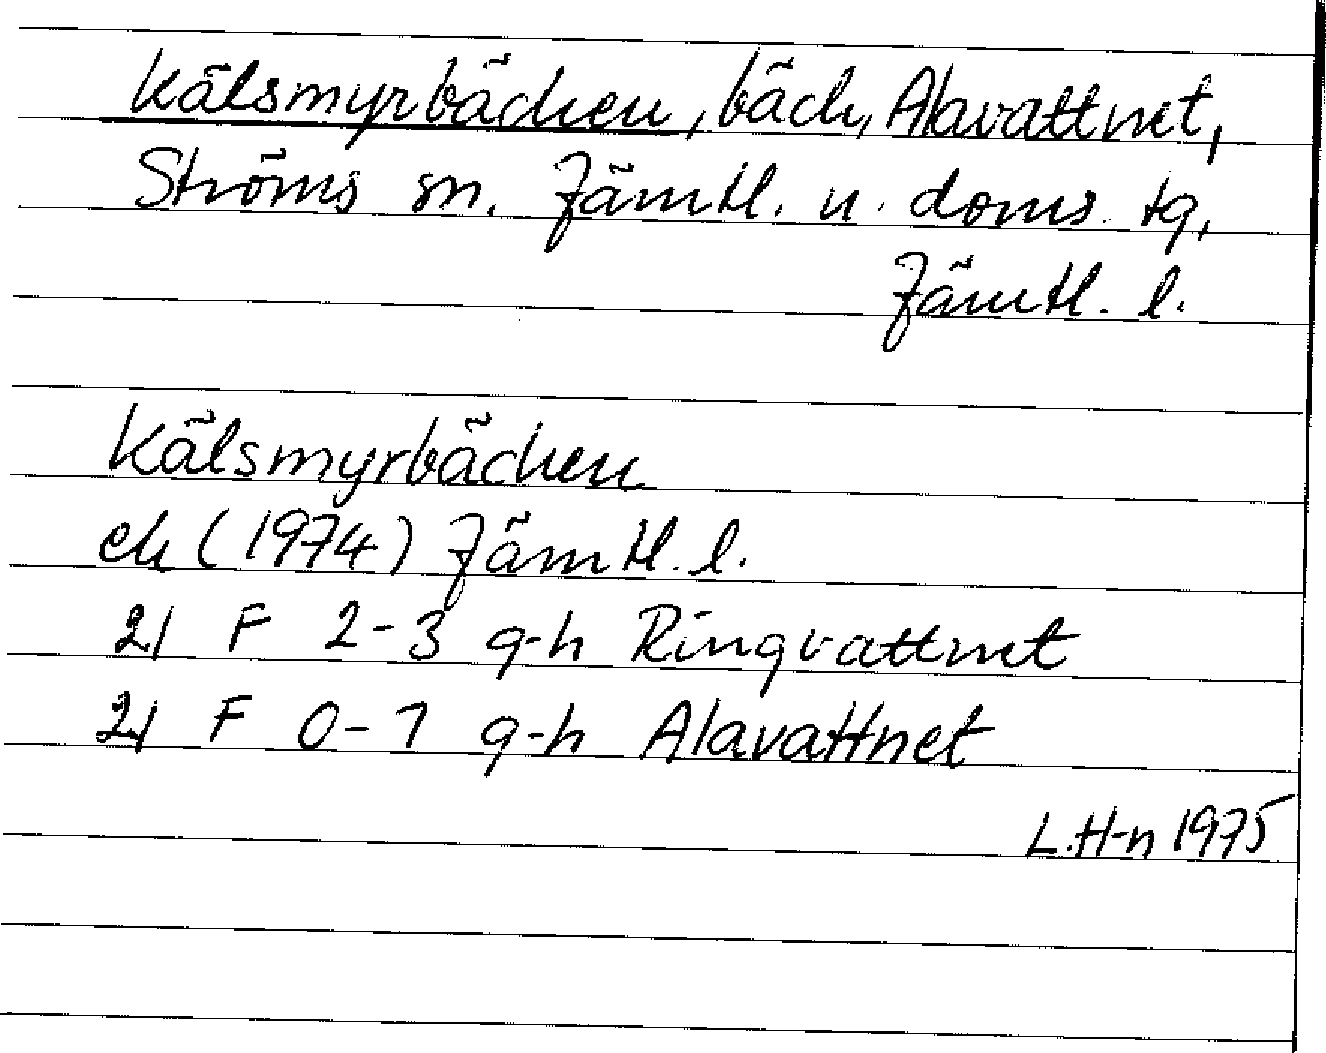 Kälsmyrbäcken, bäck, Alavattnet,
Ströms sn. Jämtl. n. doms. tg,
Jämtl. l.
Kälsmyrbäcken
ek (1974) Jämtl. l.
21 F 2-3 g-h Ringvattnet
21 F 0-1 g-h Alavattnet
L.H-n 1975